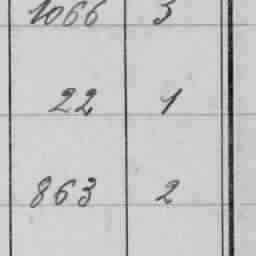 1066 3
22 1
863 2